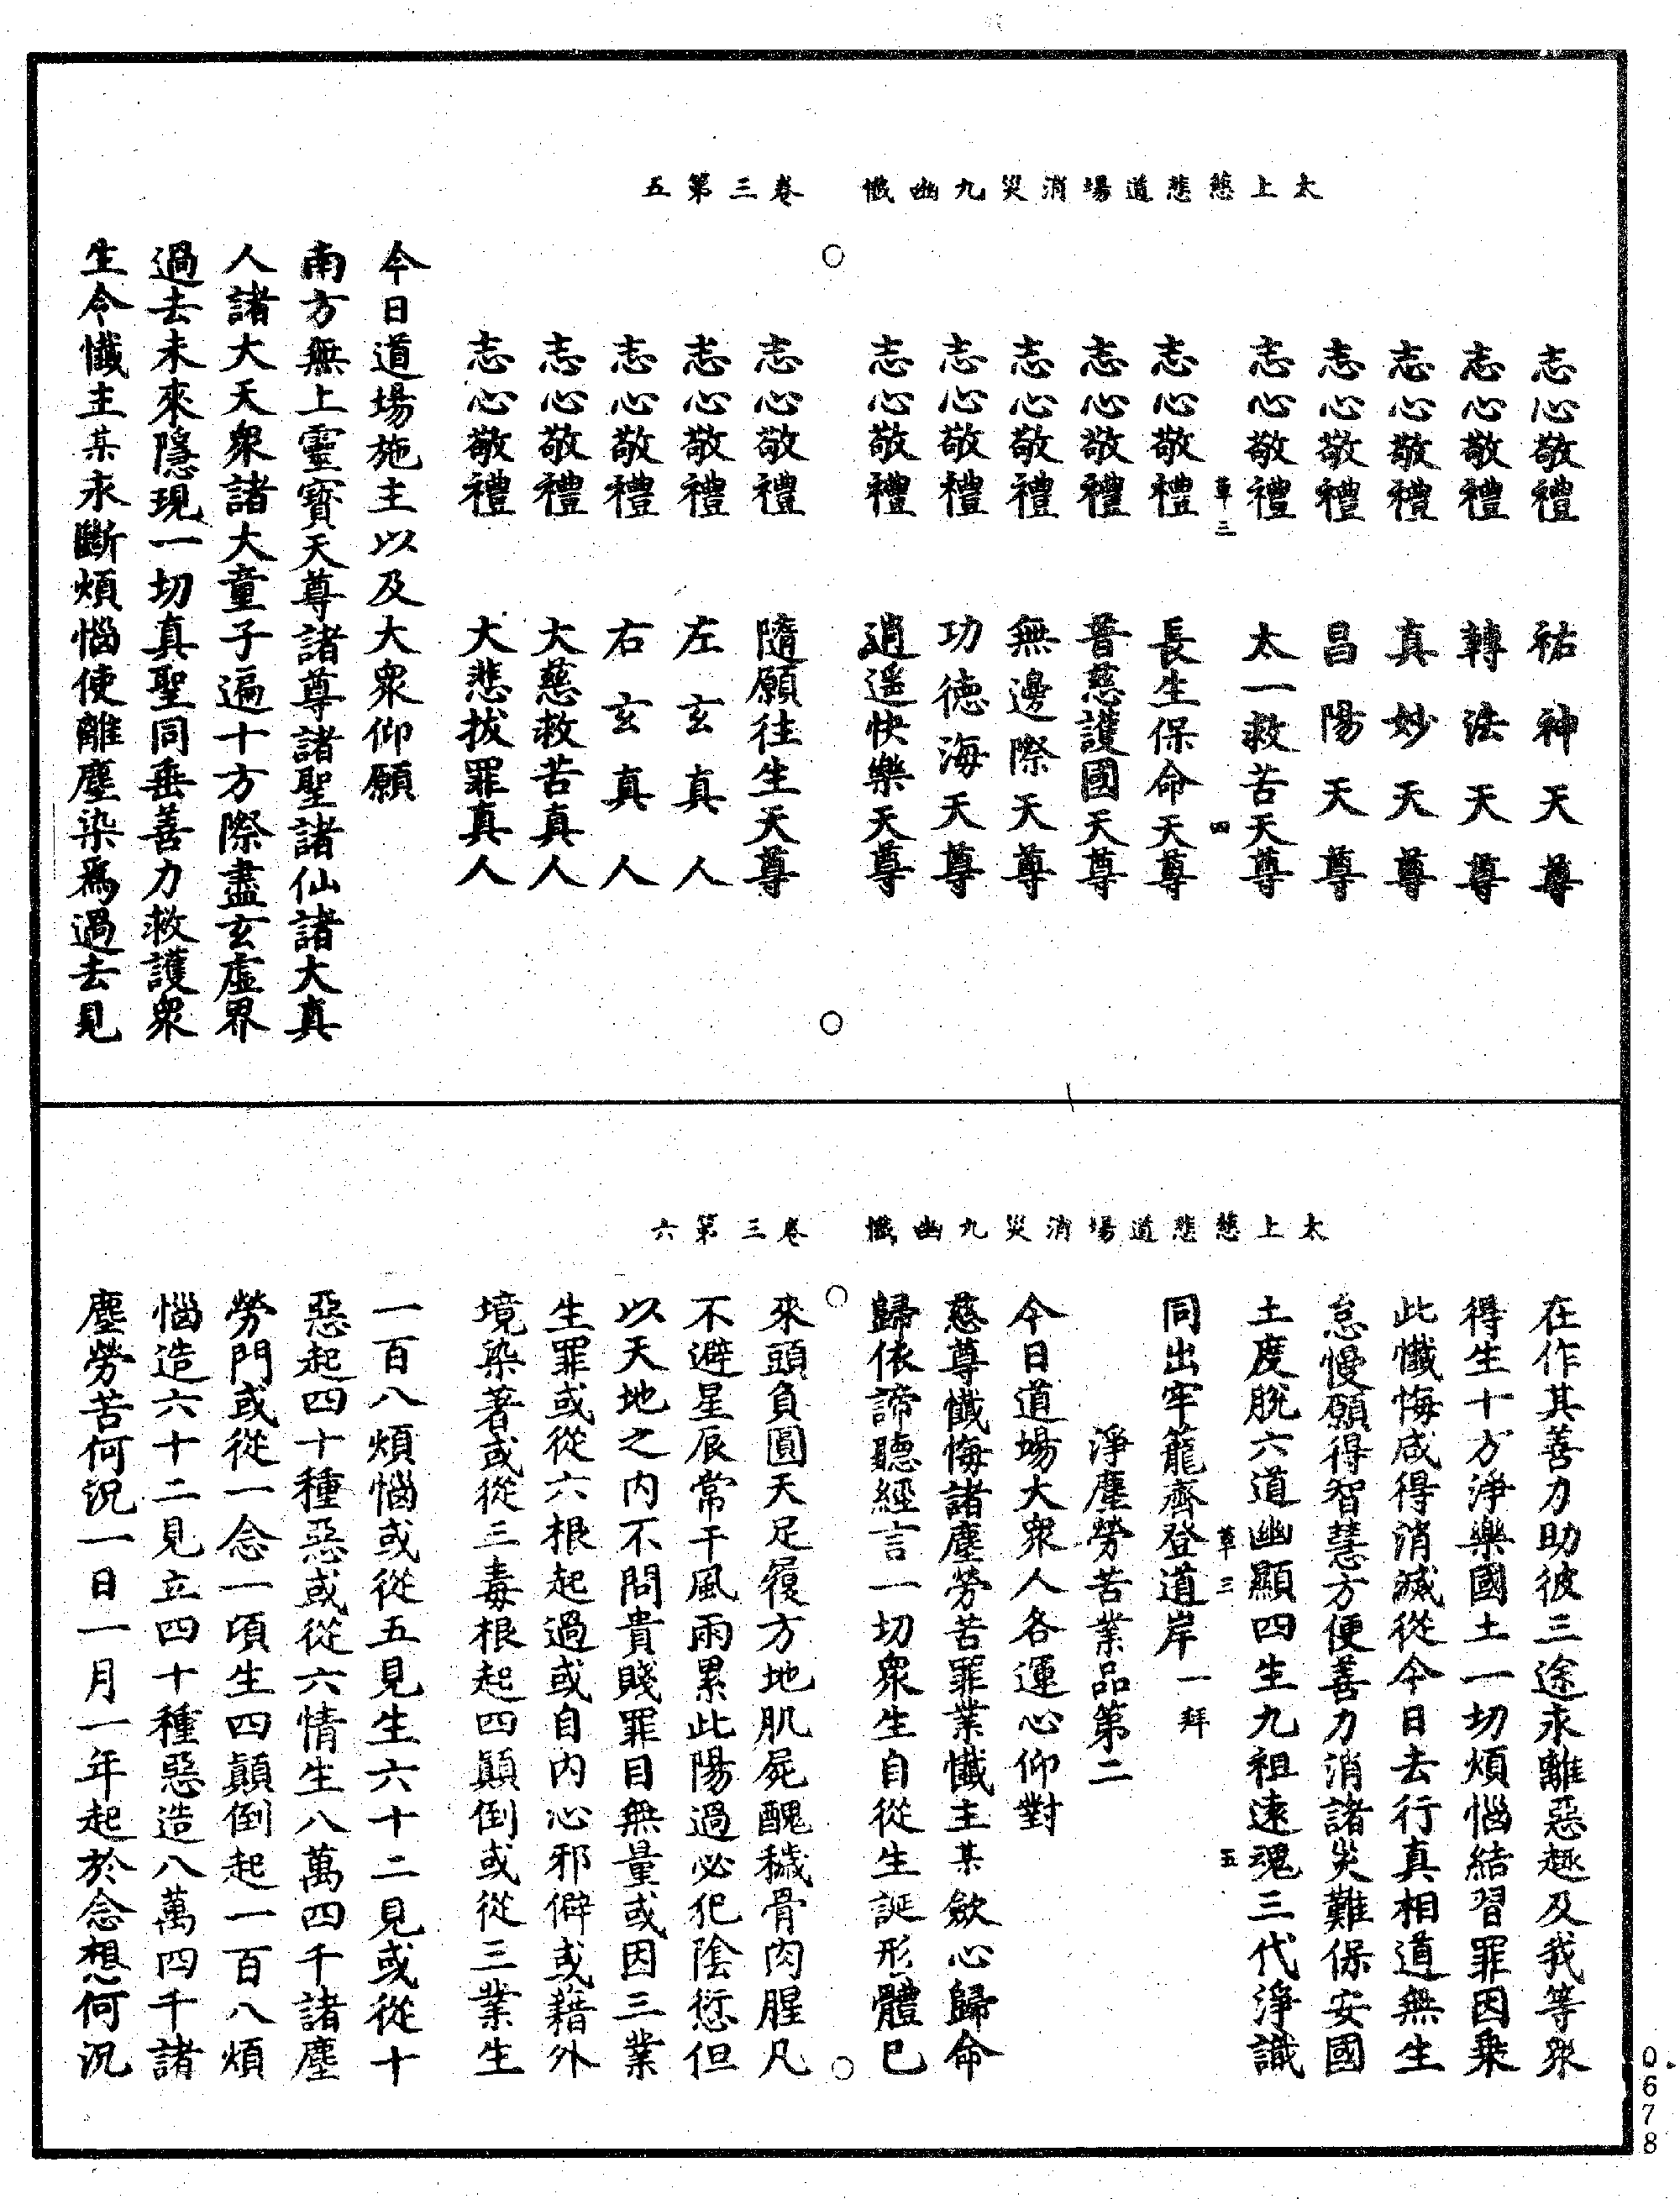 太上慈悲道場消災九幽懺　卷三第五
志心敬禮　祐神天尊
志心敬禮　轉法天尊
志心敬禮　真妙天尊
志心敬禮　昌陽天尊
志心敬禮　太一救苦天尊
草三　四
志心敬禮　長生保命天尊
志心敬禮　普慈護國天尊
志心敬禮　無邊際天尊
志心敬禮　功德海天尊
志心敬禮　逍遥快樂天尊
志心敬禮　隨願往生天尊
志心敬禮　左玄真人
志心敬禮　右玄真人
志心敬禮　大慈救苦真人
志心敬禮　大悲拔罪真人
今日道場施主以及大衆仰願
南方無上靈寶天尊諸尊諸聖諸仙諸大真
人諸大天衆諸大童子遍十方際盡玄虛界
過去未來隱現一切真聖同垂善力救護衆
生令懺主某永斷煩惱使離塵染爲過去見
太上慈悲道場消災九幽懺　卷三第六
在作其善力助彼三途永離惡趣及我等衆
得生十方淨樂國土一切煩惱結習罪因乗
此懺悔咸得消滅從今日去行真相道無生
怠慢願得智慧方便善力消諸災難保安國
土度脫六道幽顯四生九祖遠魂三代淨識
草三　五
同出牢籠齊登道岸一拜
淨塵勞苦業品第二
今日道場大衆人各運心仰對
慈尊懺悔諸塵勞苦罪業懺主某歛心歸命
歸依諦聽經言一切衆生自從生誕形體已
來頭負圓天足履方地肌屍醜穢骨肉腥凡
不避星辰常干風雨累此陽過必犯陰愆但
以天地之内不問貴賤罪目無量或因三業
生罪或從六根起過或自内心邪僻或藉外
境染著或從三毒根起四顛倒或從三業生
一百八煩惱或從五見生六十二見或從十
惡起四十種惡或從六情生八萬四千諸塵
勞門或從一念一頃生四顛倒起一百八煩
惱造六十二見立四十種惡造八萬四千諸
塵勞苦何況一日一月一年起於念想何況
0678